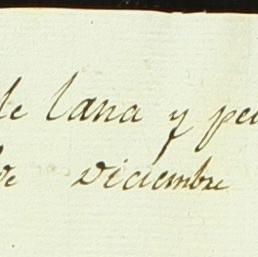 de lana y pe
de Diciembre